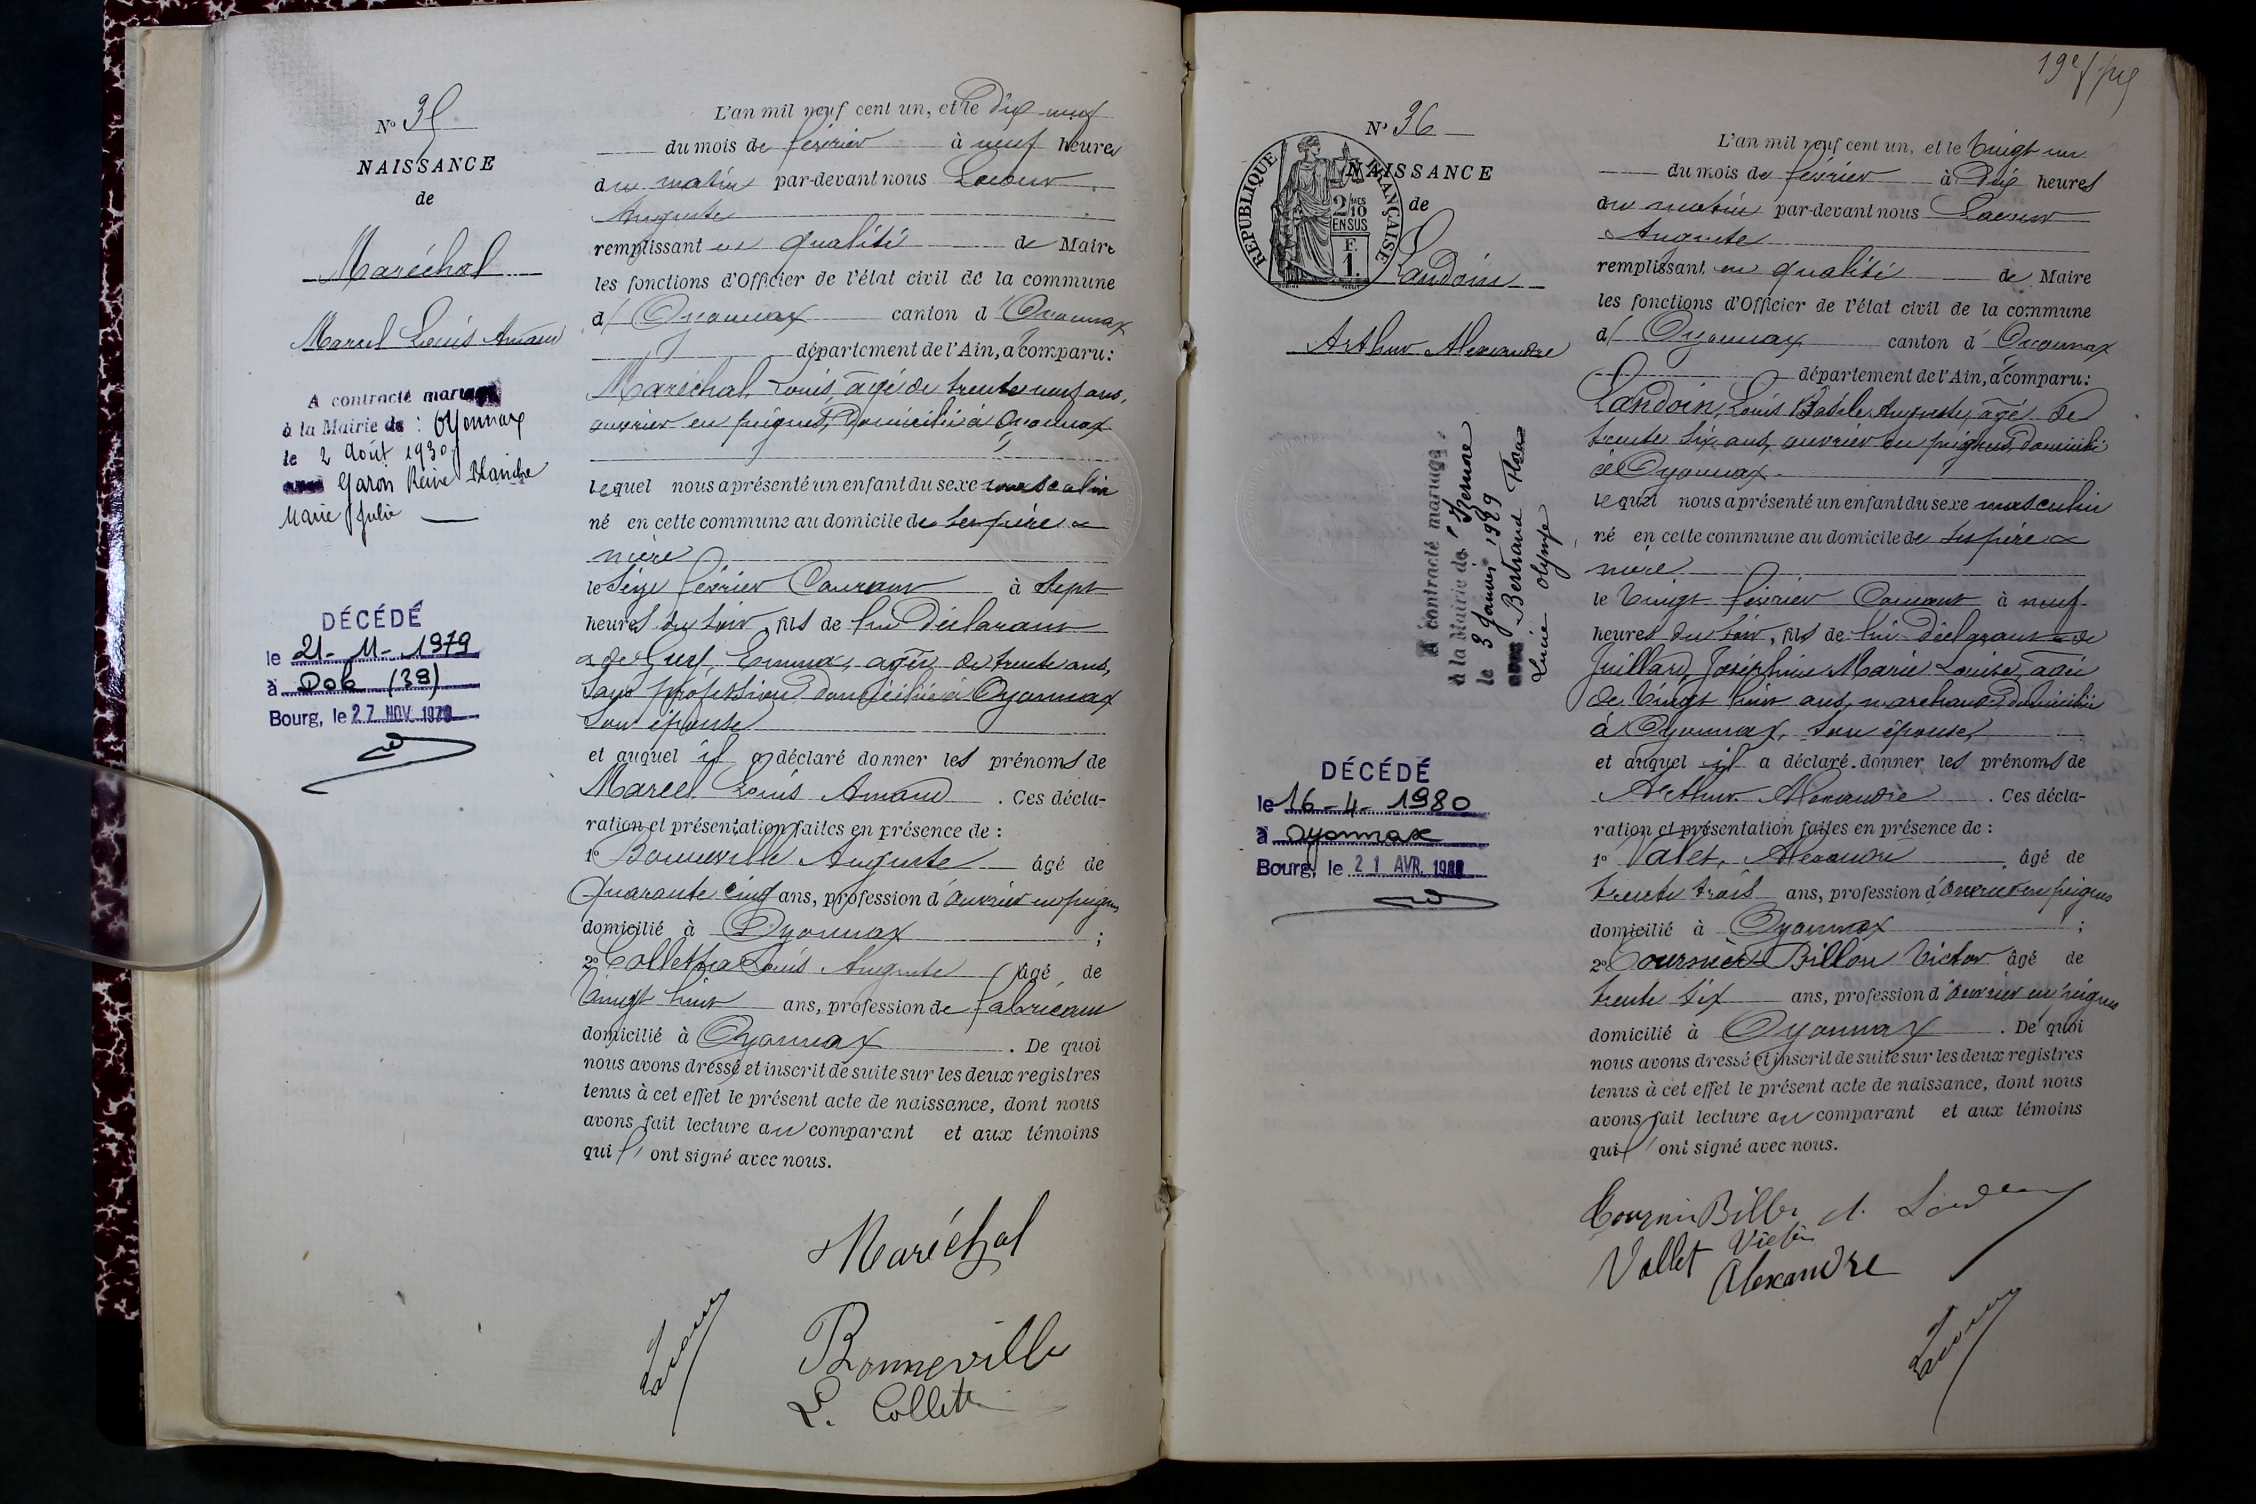 N° 35
NAISSANCE
de
Maréchal
Marcel Louis Amand
A contracté mariage
à la Mairie de : Oyonnax
le 2 Août 1930
avec Garon Reine Blanche
Marie Julie
DÉCÉDÉ
le 21-11-1979
à Dole (39)
Bourg, le 27 NOV. 1979
L'an mil neuf cent un, et le dix neuf
du mois de février à neuf heures
du matin par-devant nous Lacour
Auguste
remplissant en qualité de Maire
les fonctions d'Officier de l'état civil de la commune
d' Oyonnax canton d' Oyonnax
département de l'Ain, a comparu :
Maréchal, Louis, âgé de trente neuf ans,
ouvrier en peignes, domicilié à Oyonnax
lequel nous a présenté un enfant du sexe masculin
né en cette commune au domicile de ses père &
mère
le Seize février Courant à Sept
heures du soir, fils de lui Déclarant
& de Emma, âgée de trente ans,
Sans profession domiciliée à Oyonnax
son épouse
et auquel il a déclaré donner les prénoms de
Marcel Louis Amand . Ces décla-
ration et présentation faites en présence de :
1° Bonneville Auguste âgé de
Quarante cinq ans, profession d'ouvrier en peignes
domicilié à Oyonnax ;
2° Collette Louis Auguste âgé de
Vingt huit ans, profession de fabricant
domicilié à Oyonnax . De quoi
nous avons dressé et inscrit de suite sur les deux registres
tenus à cet effet le présent acte de naissance, dont nous
avons fait lecture au comparant et aux témoins
qui l' ont signé avec nous.
Maréchal
Lacour
Bonneville
L. Collette
19e f
N° 36
RÉPUBLIQUE FRANÇAISE
2/10 MES
EN SUS
F.
1.
NAISSANCE
de
Landoin
Arthur Alexandre
A contracté mariage
à la Mairie de
le 3 Janvier
avec Bertrand
Lucie Olympe
DÉCÉDÉ
le 16-4-1980
à Oyonnax
Bourg, le 21 AVR. 1980
L'an mil neuf cent un, et le Vingt un
du mois de février à Dix heures
du matin par-devant nous Lacour
Auguste
remplissant en qualité de Maire
les fonctions d'Officier de l'état civil de la commune
d' Oyonnax canton d' Oyonnax
département de l'Ain, a comparu :
Landoin, Louis Basile Auguste, âgé de
trente six ans, ouvrier en peignes, domicilié
à Oyonnax
lequel nous a présenté un enfant du sexe masculin
né en cette commune au domicile de ses père &
mère
le Vingt février Courant à neuf
heures du soir, fils de lui déclarant & de
Juillard, Joséphine Marie Louise, âgée
de Vingt huit ans, marchande domiciliée
à Oyonnax, son épouse
et auquel il a déclaré donner les prénoms de
Arthur Alexandre . Ces décla-
ration et présentation faites en présence de :
1° Valet, Alexandre âgé de
trente trois ans, profession d'ouvrier en peignes
domicilié à Oyonnax ;
2° Tournier-Billon Victor âgé de
trente six ans, profession d'ouvrier en peignes
domicilié à Oyonnax . De quoi
nous avons dressé et inscrit de suite sur les deux registres
tenus à cet effet le présent acte de naissance, dont nous
avons fait lecture au comparant et aux témoins
qui l' ont signé avec nous.
Victor
Vallet Alexandre
Lacour